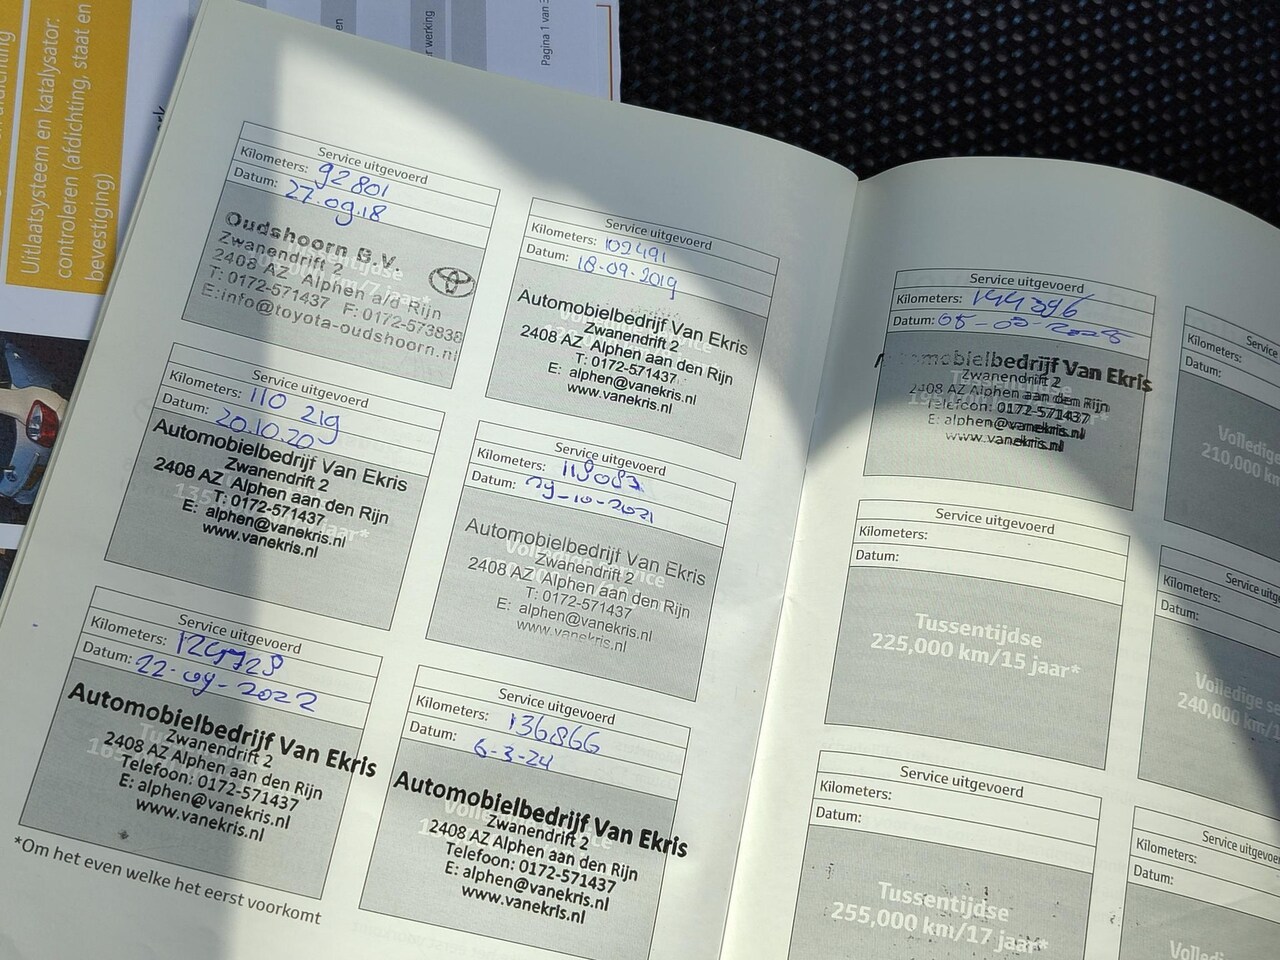 Uitlaatsysteem en katalysator:
controleren (afdichting, staat en
bevestiging)
Pagina 1 van
Service uitgevoerd
Kilometers: 92801
Datum: 27.09.18
Oudshoorn B.V.
Zwanendrift 2
2408 AZ Alphen a/d Rijn
T: 0172-571437 F: 0172-573838
E: info@toyota-oudshoorn.nl
Service uitgevoerd
Kilometers: 102491
Datum: 18-09-2019
Automobielbedrijf Van Ekris
Zwanendrift 2
2408 AZ Alphen aan den Rijn
T: 0172-571437
E: alphen@vanekris.nl
www.vanekris.nl
Service uitgevoerd
Kilometers: 110 219
Datum: 20.10.20
Automobielbedrijf Van Ekris
Zwanendrift 2
2408 AZ Alphen aan den Rijn
T: 0172-571437
E: alphen@vanekris.nl
www.vanekris.nl
Service uitgevoerd
Kilometers:
Datum: 29-10-2021
Automobielbedrijf Van Ekris
Zwanendrift 2
2408 AZ Alphen aan den Rijn
T: 0172-571437
E: alphen@vanekris.nl
www.vanekris.nl
Service uitgevoerd
Kilometers:
Datum: 22-09-2022
Automobielbedrijf Van Ekris
Zwanendrift 2
2408 AZ Alphen aan den Rijn
Telefoon: 0172-571437
E: alphen@vanekris.nl
www.vanekris.nl
Service uitgevoerd
Kilometers: 136866
Datum: 6-3-24
Automobielbedrijf Van Ekris
Zwanendrift 2
2408 AZ Alphen aan den Rijn
Telefoon: 0172-571437
E: alphen@vanekris.nl
www.vanekris.nl
*Om het even welke het eerst voorkomt
Service uitgevoerd
Kilometers:
Datum:
Automobielbedrijf Van Ekris
Zwanendrift 2
2408 AZ Alphen aan den Rijn
Telefoon: 0172-571437
E: alphen@vanekris.nl
www.vanekris.nl
Service uitgevoerd
Kilometers:
Datum:
Tussentijdse
225,000 km/15 jaar*
Service uitgevoerd
Kilometers:
Datum:
Tussentijdse
255,000 km/17 jaar*
Service
Kilometers:
Datum:
Volledige
210,000 km
Service uitge
Kilometers:
Datum:
Volledige
240,000 km/1
Service uitgevoe
Kilometers:
Datum: